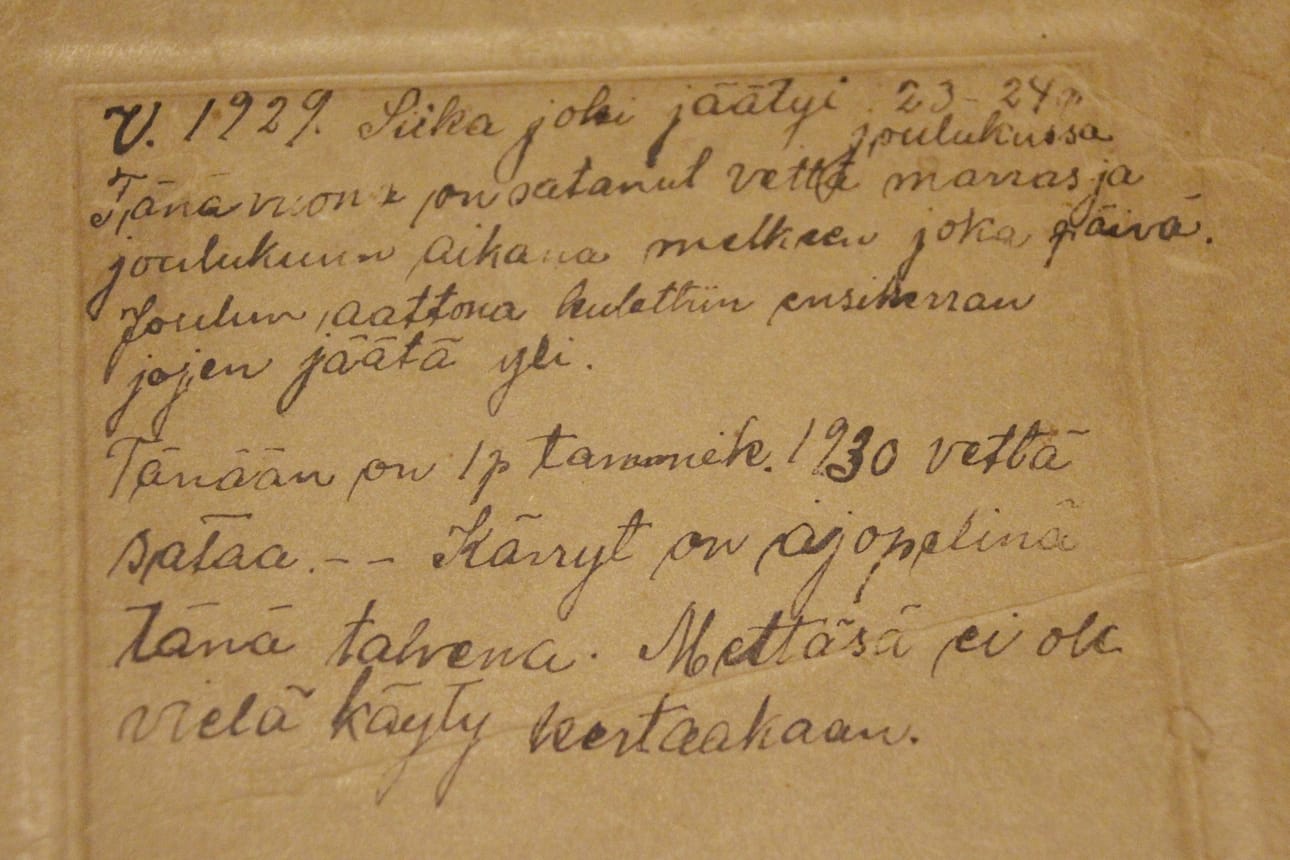 V. 1929. Siika joki jäätyi 23-24p
joulukussa
Tänä vuonx on satanut vettä marras ja
joulukuun aikana melkeen joka päivä.
Joulun aattona kulettiin ensikerran
jojen jäätä yli.
Tänään on 1p tammik. 1930 vettä
sataa. - - Kärryt on ajopelinä
tänä talvena. Mettäsä ei ole
vielä käyty kertaakaan.